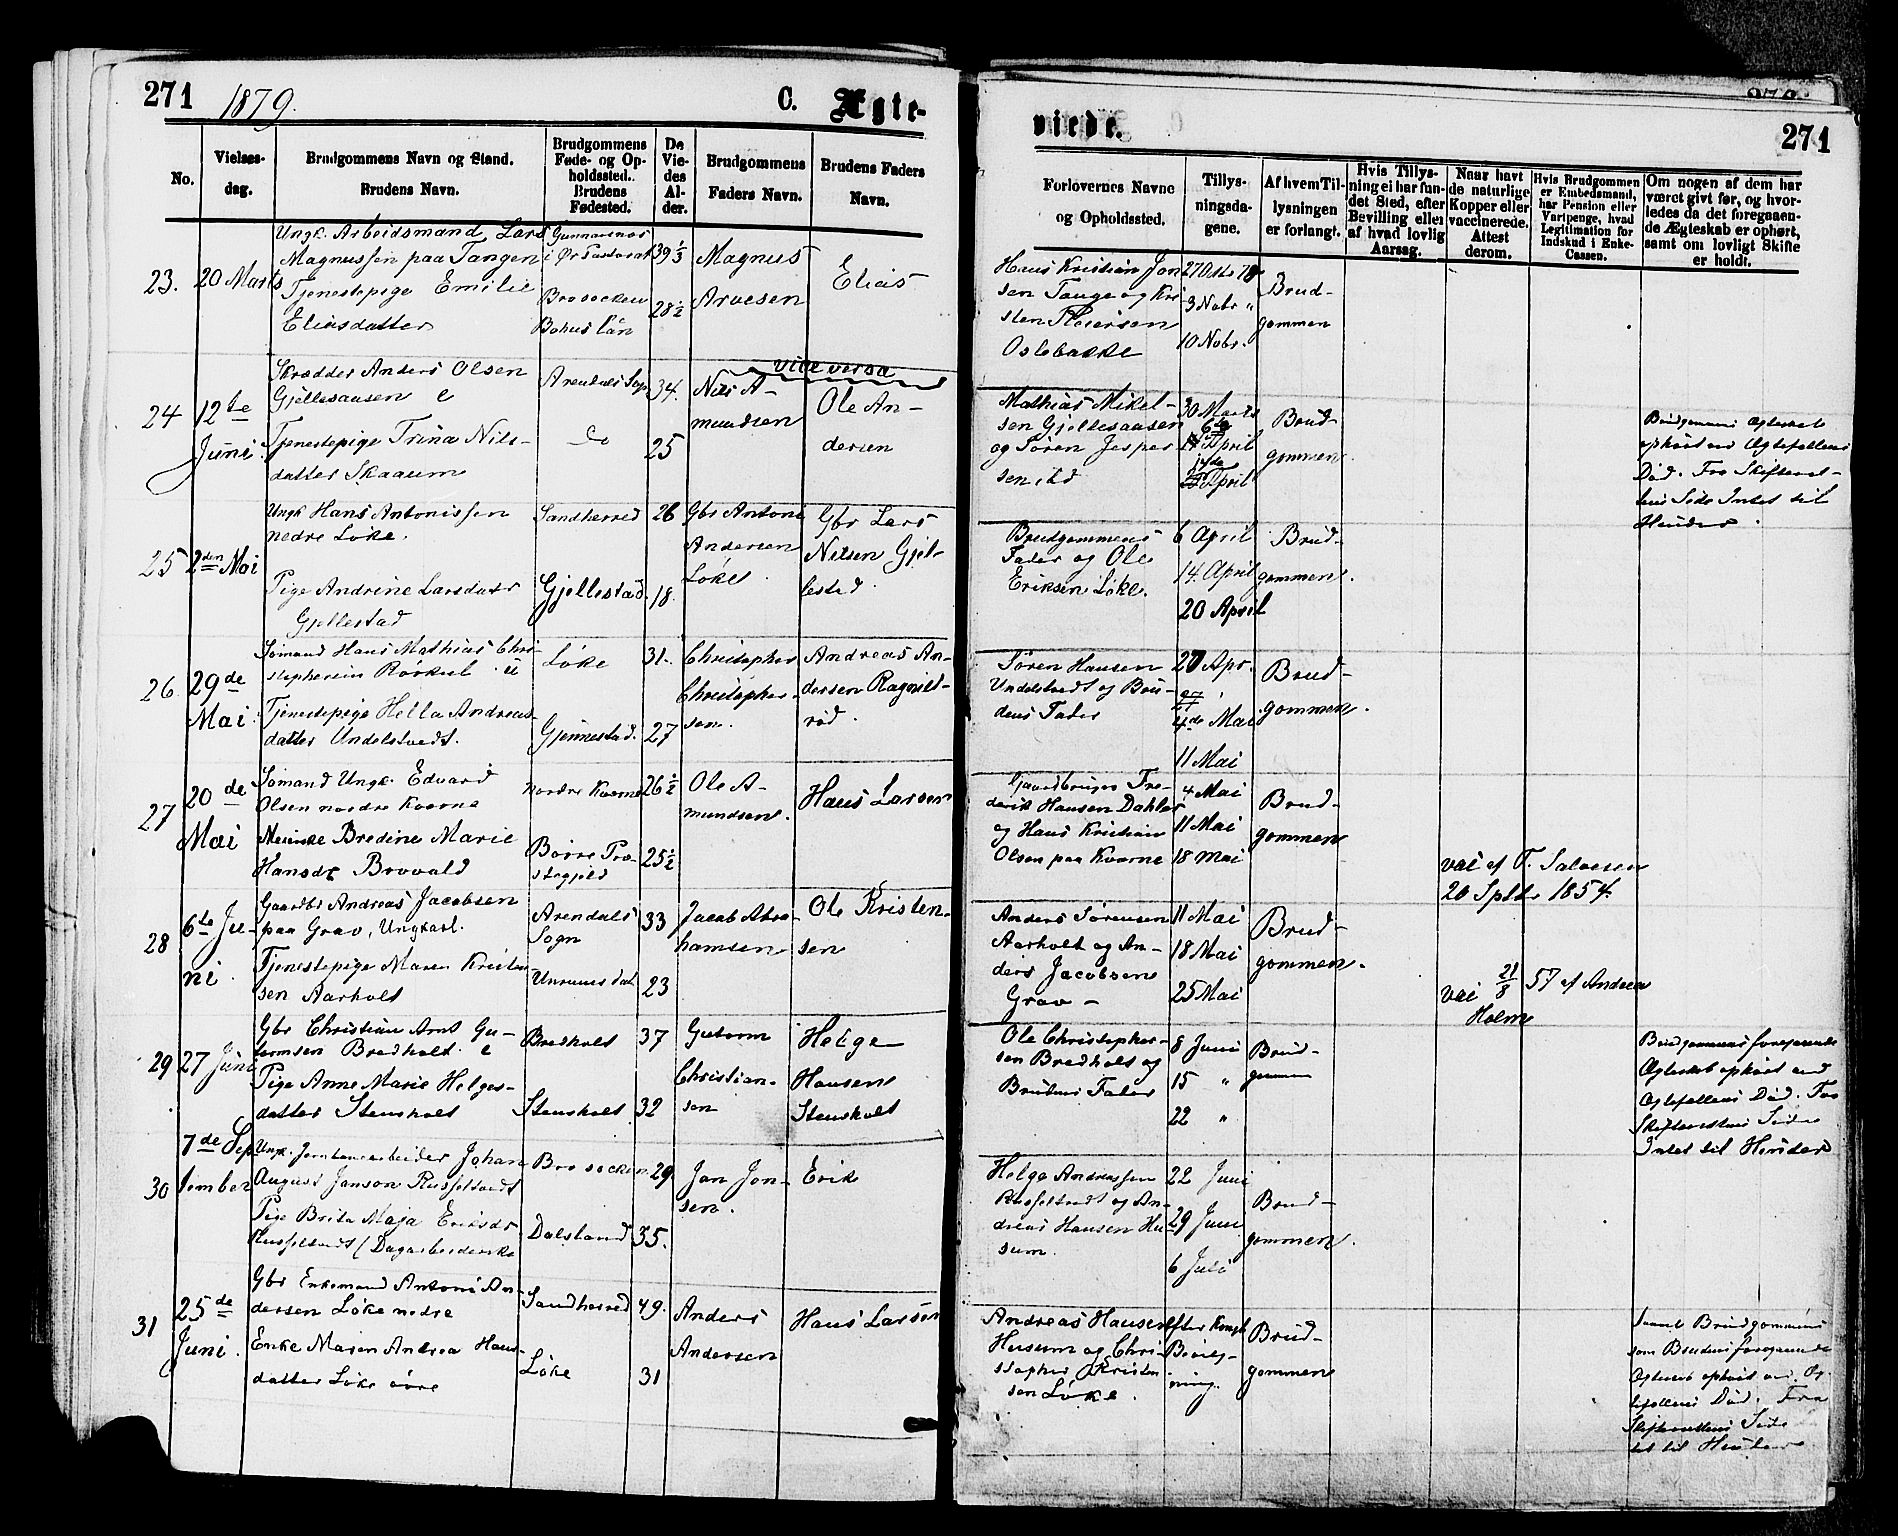 271
1879.
C.
Ægte-
No.
Vielses-
dag.
Brudgommens Navn og Stand.
Brudens Navn.
Brudgommens
Føde- og Op-
holdssted.
Brudens
Fødested.
De
Vie-
des
Al-
der.
Brudgommens
Faders Navn.
Brudens Faders
Navn.
23.
20 Marts
Ungk. Arbeidsmand Lars
Magnussen paa Tangen
Tjenestepige Emilie
Eliasdatter
Brosocken
Bohus län
39 1/3
28 1/2
Magnus
Arvesen
Elias
24
12te
Juni.
Skrædder Anders Olsen
Gjellesaasen e
Tjenestepige Trina Nils-
datter Skaaum
Arendals Sogn
do
34.
25
vice versa
Nils A-
mundsen
Ole An-
dersen
25
2den Mai
Ungk Hans Antonissen
nedre Løke.
Pige Andrine Larsdatr
Gjellestad
Sandherred
Gjellestad
26
18.
Gbr Anton
Andersen
Løke.
Gbr Lars
Nilsen Gjel-
lestad.
26
29de
Mai.
Sømand Hans Mathias Chri-
stophersen Rørkul u
Tjenestepige Hella Andreas-
datter Undelstvedt.
Løke
Gjennestad.
31.
27
Christopher
Christopher-
sen.
Andreas An-
dersen Ragnils-
rød.
27
20de
Mai
Sømand Ungk. Edvard
Olsen nordre Kverne
Bredine Marie
Hansdr Brovold
nordre Kverne
Borre Præ-
stegjeld
26 1/2
25 1/2
Ole A-
mundsen.
Hans Larsen
28
6te Ju-
ni.
Gaardbr Andreas Jacobsen
paa Grav, Ungkarl.
Tjenestepige Maren Kristen-
sen Aarholt
Arendals
Sogn
33
23
Jacob Abra-
hamsen
Ole Kristen-
sen
29
27 Juni
Gbr Christian Arnt Gu-
tormsen Bredholt. e
Pige Anne Marie Helges-
datter Stensholt
Bredholt
Stensholt
37
32
Gutorm
Christian-
sen
Helge
Hansen
Stensholt
30
7de Sep
tember
Ungk. Jernbanearbeider Johan
August Janson Russeltvedt
Pige Brita Maja Eriksdr
Russeltvedt (Dagarbeiderske
Brosocken
Dalsland
29
35.
Jan Jon-
sen.
Erik
31
25de
Juni.
Gbr Enkemand Antoni An-
dersen Løke nedre
Enke Maren Andrea Hans-
datter Løke øvre
Sandherred
Løke
49.
31
Anders
Andersen
Hans Larsen
viede.
271
Forlovernes Navne
og Opholdssted.
Tillys-
ningsda-
gene.
Af hvem Til-
lysningen
er forlangt.
Hvis Tillys-
ning ei har fun-
det Sted, efter
Bevilling eller
af hvad lovlig
Aarsag.
Naar havt
de naturlige
Kopper eller
vaccinerede.
Attest
derom.
Hvis Brudgommen
er Embedsmand,
har Pension eller
Vartpenge, hvad
Legitimation for
Indskud i Enke-
Cassen.
Om nogen af dem har
været givt før, og hvor-
ledes da det foregaaen-
de Ægteskab er ophørt,
samt om lovligt Skifte
er holdt.
Hans Kristian Jon
sen Tange og Kri
sten
Oslebakke
27 Okt 78
3 Nobr "
10 Nobr.
Brud-
gommen
Mathias Mikel-
sen Gjellesaasen
og Søren Jesper
sen ibd
30 Marts
6te
April
April
Brud-
gommen.
Brudgommens Ægteskab
ophørt ved Ægtefællens
Død. Fra Skifteret-
tens Side Intet til
Hinder.
Brudgommens
Fader og Ole
Eriksen Løke.
6 April
14 April
20 April
Brud-
gommen.
Søren Hansen
Undelstvedt og Bru-
dens Fader
27 Apr.
4de Mai
11 Mai
Brud-
gommen.
Gaardbruger Fre-
derik Hansen Dahler
og Hans Kristian
Olsen paa Kverne
4 Mai
11 Mai
18 Mai
Brud-
gommen
vac af T. Salvesen
20 Septbr 1854.
Anders Sørensen
Aarholt og An-
ders Jacobsen
Grav -
11 Mai
18 Mai
25 Mai
Brud-
gommen.
vac 21/8 57 af Andrea
Holm
Ole Christopher-
sen Bredholt og
Brudens Fader
8 Juni
15 "
22 "
Brud-
gommen
Brudgommens foregaaende
Ægteskab ophørt ved
Ægtefællens Død. Fra
Skifterettens Side
Intet til Hinder
Helge Andreassen
Russeltvedt og An-
dreas Hansen Hu-
sum.
22 Juni
29 Juni
6 Juli
Brud-
gommen.
Andreas Hansen
Husum og Chri-
stopher Kristen
sen Løke.
efter Kongl
Bevilg-
ning.
Brud-
gommen
Saavel Brudgommens
som Brudens foregaaende
Ægteskab ophørt ved Æg-
tefællens Død. Fra
Skifterettens Side
tet til Hinder